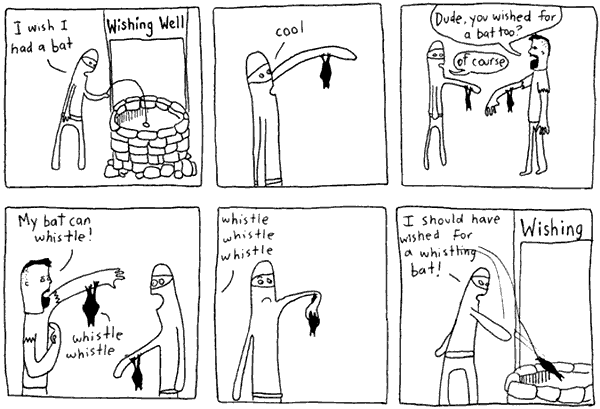 I wish I
had a bat
Wishing Well
cool
Dude, you wished for
a bat too?
of course
My bat can
whistle!
whistle
whistle
whistle
whistle
whistle
I should have
wished for
a whistling
bat!
Wishing